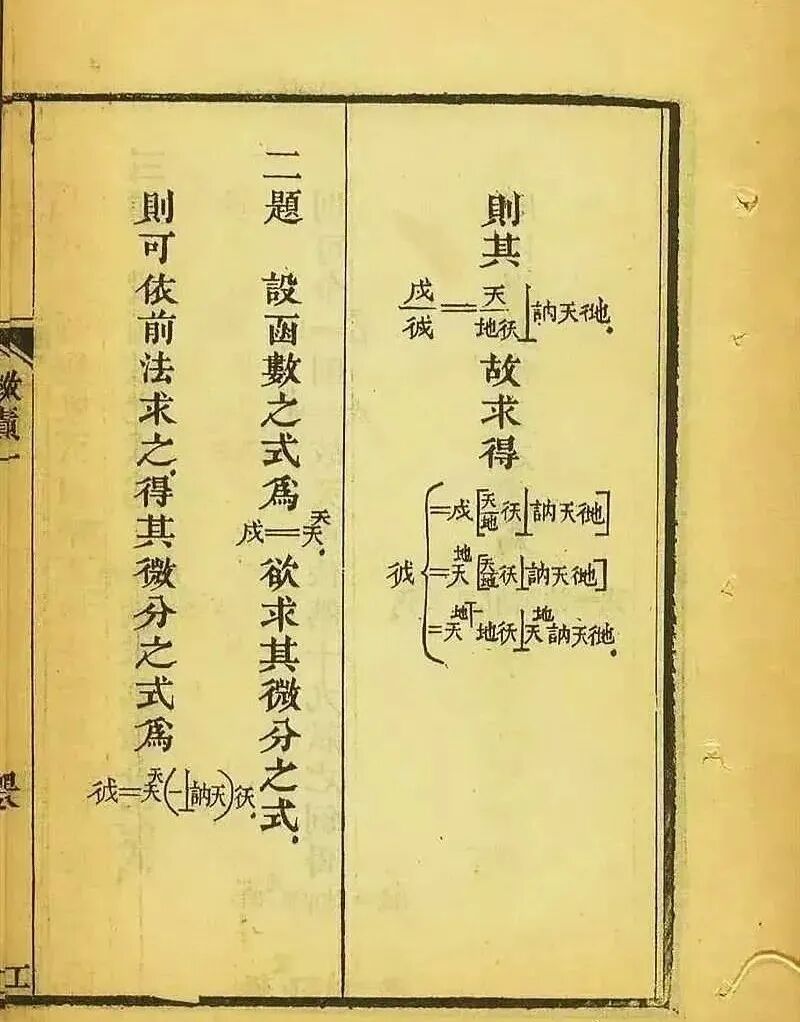 則其
戌/彳戌＝天/地彳天⊥訥天彳地.
故求得
彳戌{＝戌[天/地彳天⊥訥天彳地]
＝天^地[天/地彳天⊥訥天彳地]
＝天^地丅一地彳天⊥天^地訥天彳地.
二題　設函數之式爲戌＝天^天.欲求其微分之式.
則可依前法求之.得其微分之式爲彳戌＝天^天(一⊥訥天)彳天.